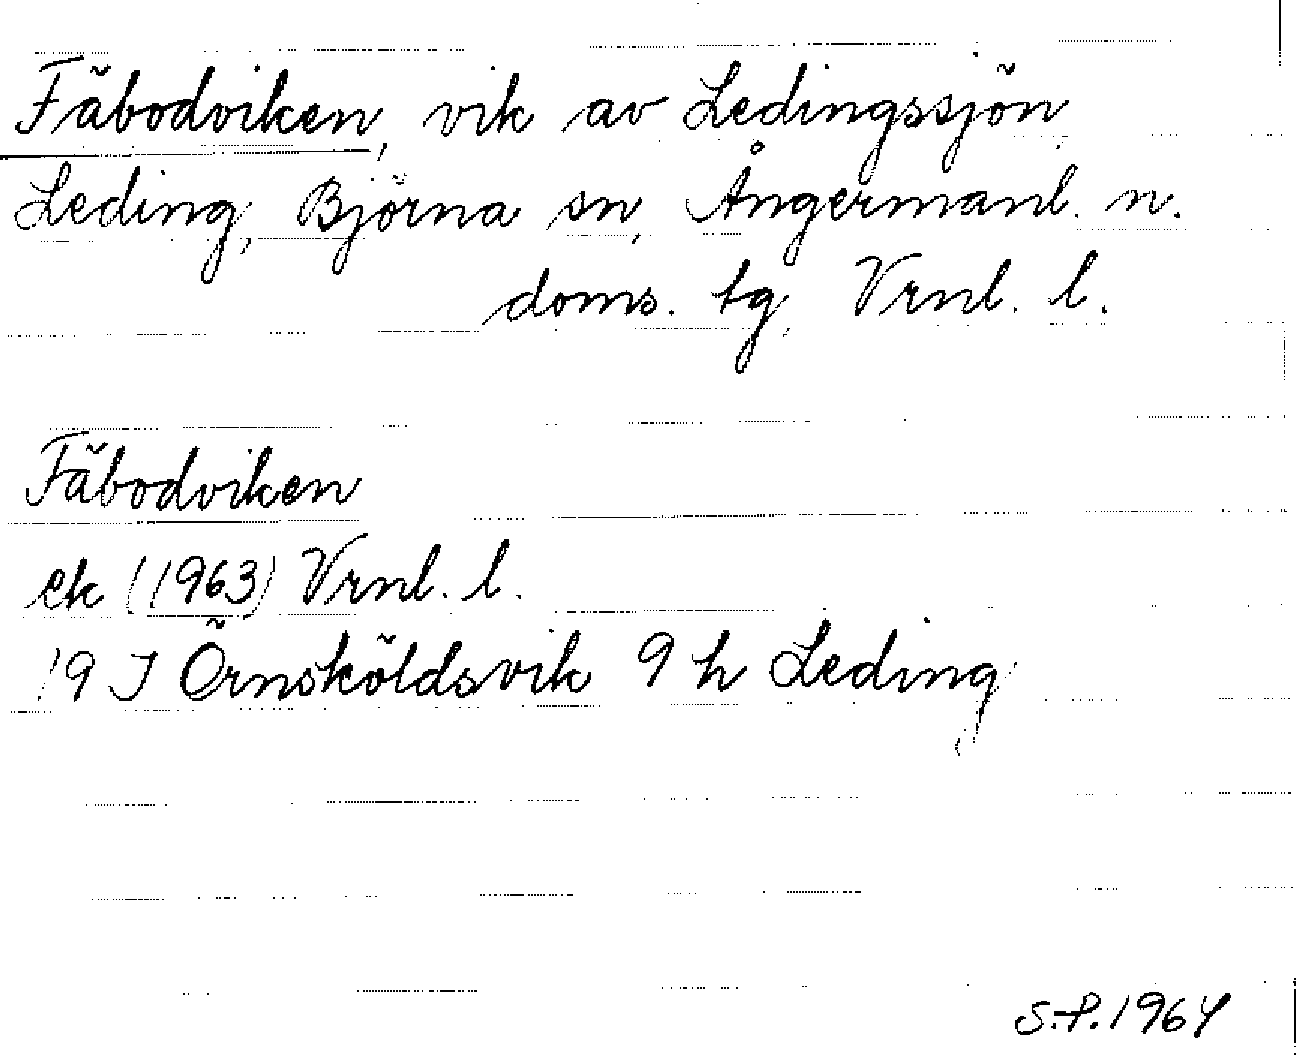 Fäbodviken, vik av Ledingssjön,
Leding, Björna sn, Ångermanl. n.
doms. tg, Vrnl. l.
Fäbodviken
ek (1963) Vrnl. l.
19 J Örnsköldsvik 9 h Leding
S.P. 1964